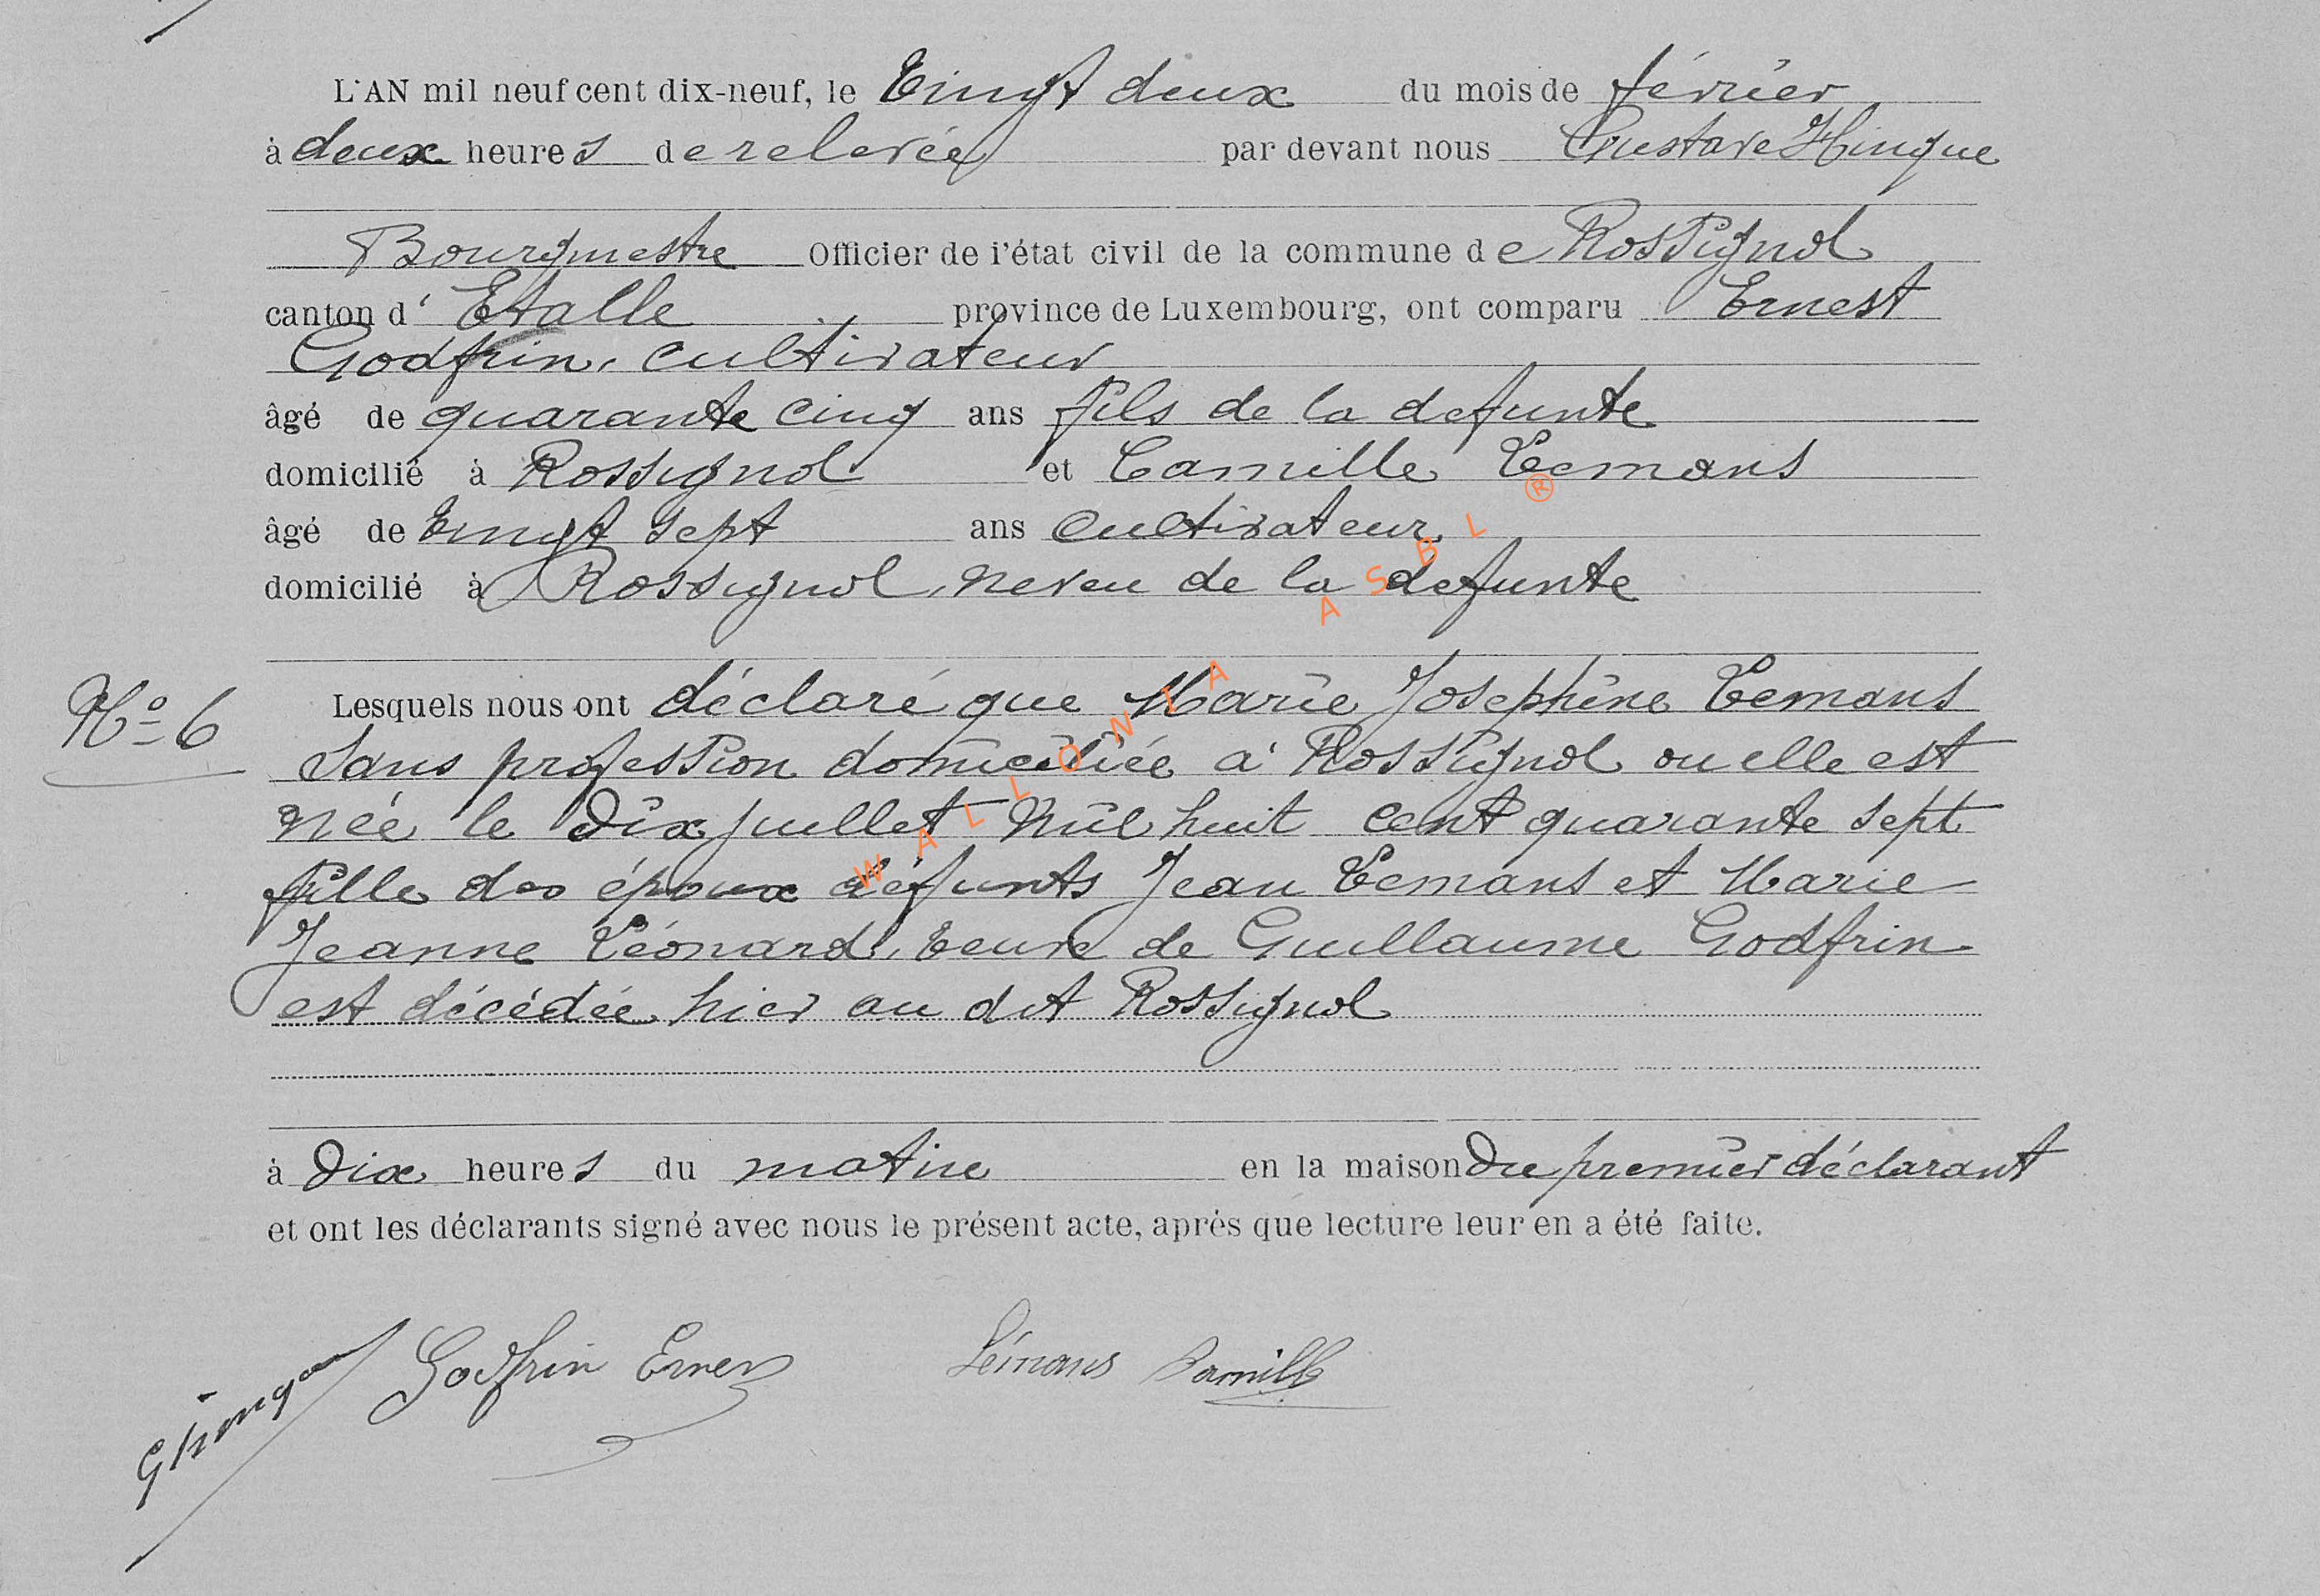 L'AN mil neuf cent dix-neuf, le Vingt deux du mois de février
à deux heures de relevée par devant nous Gustave Hinque
Bourgmestre Officier de l'état civil de la commune de Rossignol
canton d' Etalle province de Luxembourg, ont comparu Ernest
Godfrin, cultivateur
âgé de quarante cinq ans fils de la defunte
domicilié à Rossignol et Camille Lemans
âgé de Vingt sept ans cultivateur
domicilié à Rossignol, neveu de la defunte
Nº 6
Lesquels nous ont déclaré que Marie Josephine Lemans
Sans profession domiciliée à Rossignol ou elle est
née le Dix juillet mil huit cent quarante sept
fille des époux défunts Jean Lemans et Marie
Jeanne Léonard, veuve de Guillaume Godfrin
est décédée hier au dit Rossignol
à Dix heures du matin en la maison du premier déclarant
et ont les déclarants signé avec nous le présent acte, après que lecture leur en a été faite.
Godfrin Ernest Lémans Camille
WALLONIA ASBL ®